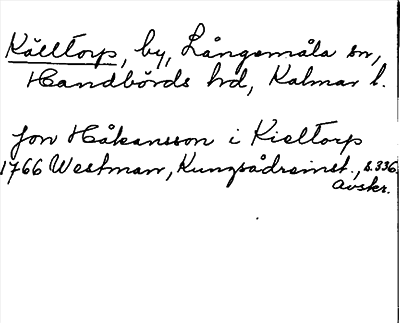 Källtorp, by, Långemåla sn,
Handbörds hd, Kalmar l.
Jon Håkansson i Kieltorp
1766 Westman, Kungsådreinst., s. 336.
Avskr.